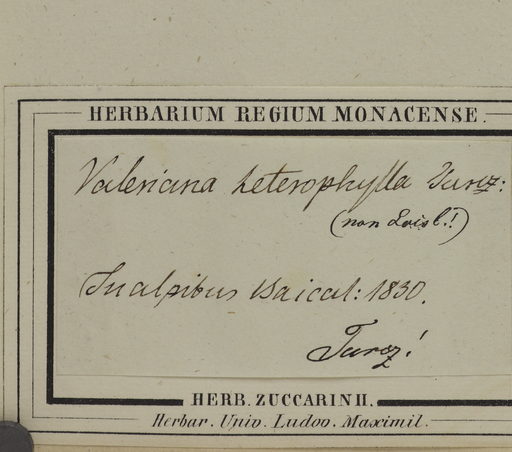 HERBARIUM REGIUM MONACENSE.
Valeriana heterophylla Turcz:
(non Loisl.!)
In alpibus Baical: 1830.
Turcz!
HERB. ZUCCARINII.
Herbar. Univ. Ludov. Maximil.